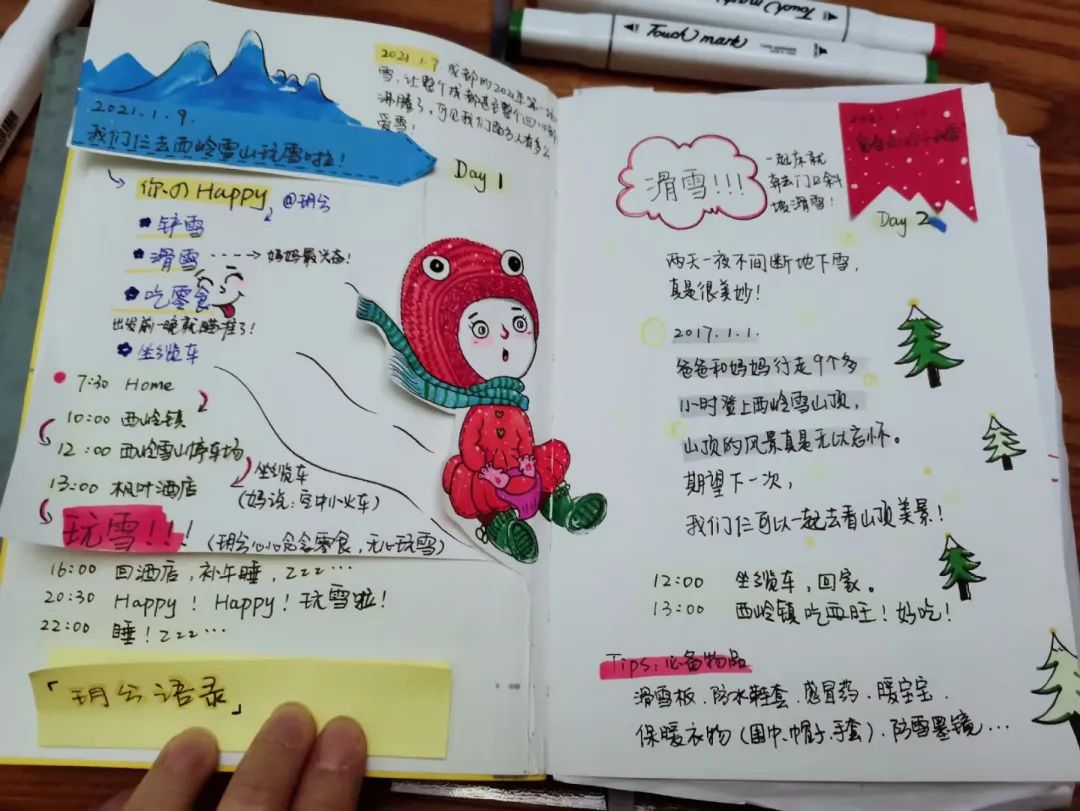 Touch mark
Touch mark
2021.1.9.
我们仨去西岭雪山玩雪啦!
2021.1.7 成都的2021年第一
雪,让整个成都甚至整个四川
沸腾了,可见我们南方人有多么
爱雪!
Day 1
你の Happy @玥兮
铲雪
滑雪 ----> 妈妈最兴奋!
吃零食
出发前一晚就睡着了!
坐缆车
7:30 Home
10:00 西岭镇
12:00 西岭雪山停车场
坐缆车
13:00 枫叶酒店
(妈说:空中小火车)
玩雪!!! (玥兮心心念念零食,无心玩雪)
16:00 回酒店,补午睡,Zzz…
20:30 Happy! Happy! 玩雪啦!
22:00 睡!Zzz…
「玥兮语录」
滑雪!!!
一起床就
去门口斜
坡滑雪!
2021.1.10
Day 2
两天一夜不间断地下雪,
真是很美妙!
2017.1.1.
爸爸和妈妈行走9个多
小时登上西岭雪山顶,
山顶的风景真是无以忘怀。
期望下一次,
我们仨可以一起去看山顶美景!
12:00 坐缆车,回家。
13:00 西岭镇吃豆旺!好吃!
Tips:必备物品
滑雪板、防水鞋套、感冒药、暖宝宝、
保暖衣物(围巾、帽子、手套)、防雪墨镜…